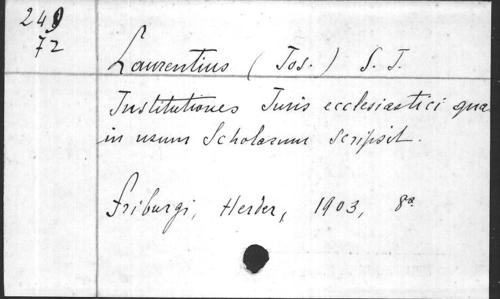 249
72
Laurentius (Jos.) S. J.
Institutiones Juris ecclesiastici qua
in usum Scholarum scripsit.
Friburgi, Herder, 1903, 8º